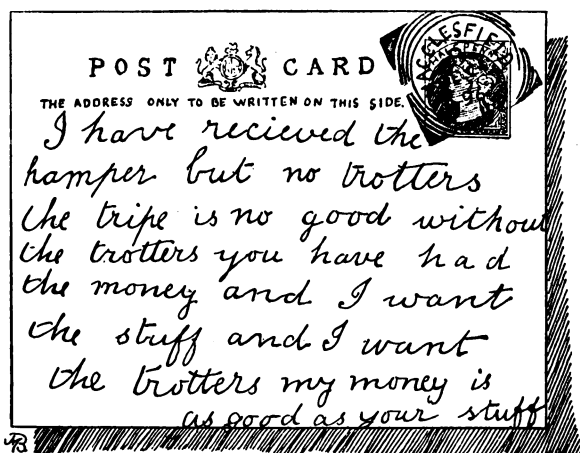 POST CARD
THE ADDRESS ONLY TO BE WRITTEN ON THIS SIDE.
MACCLESFIELD
HALFPENNY
I have recieved the
hamper but no trotters
the tripe is no good without
the trotters you have had
the money and I want
the stuff and I want
the trotters my money is
as good as your stuff